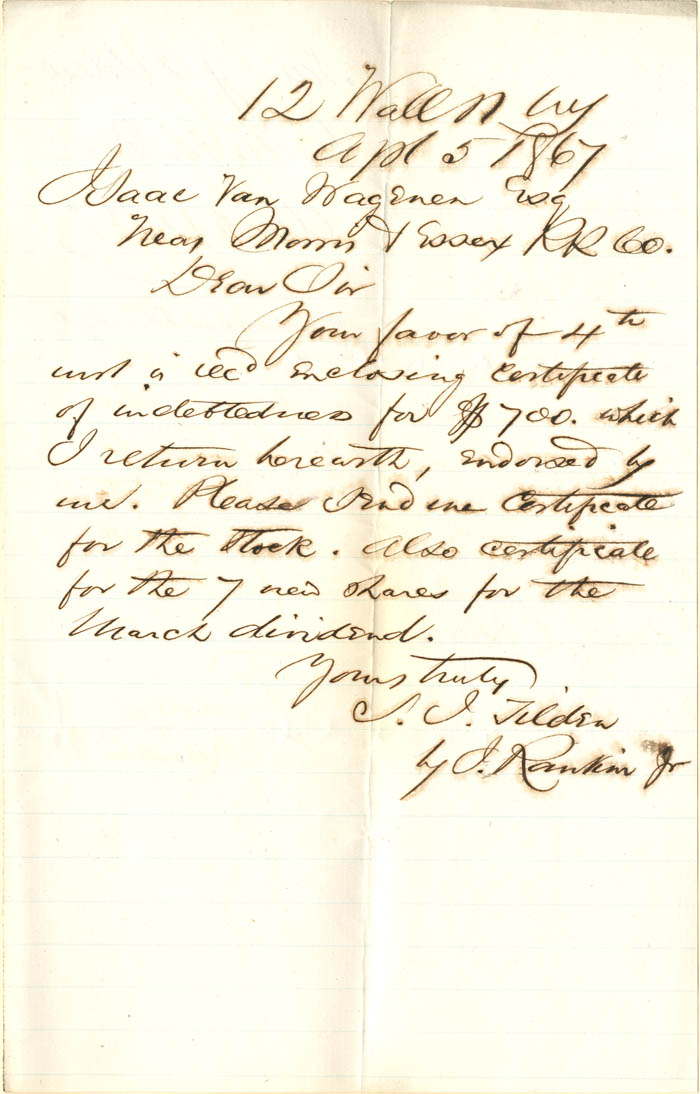 12 Wall St NY
Apl 5 1867
Isaac Van Wagenen Esq
Treas Morris & Essex RR Co.
Dear Sir
Your favor of 4th
inst is recd enclosing certificate
of indebtedness for $700. which
I return herewith, endorsed by
me. Please send me certificate
for the stock. Also certificate
for the 7 new shares for the
March dividend.
Yours truly
S. J. Tilden
by J. Rankin Jr